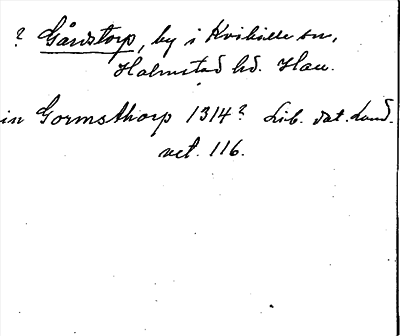 ? Gårdstorp, by i Kvibille sn,
Halmstad hd. Hall.
in Gormsthorp 1314? Lib. dat. Lund.
vet. 116.